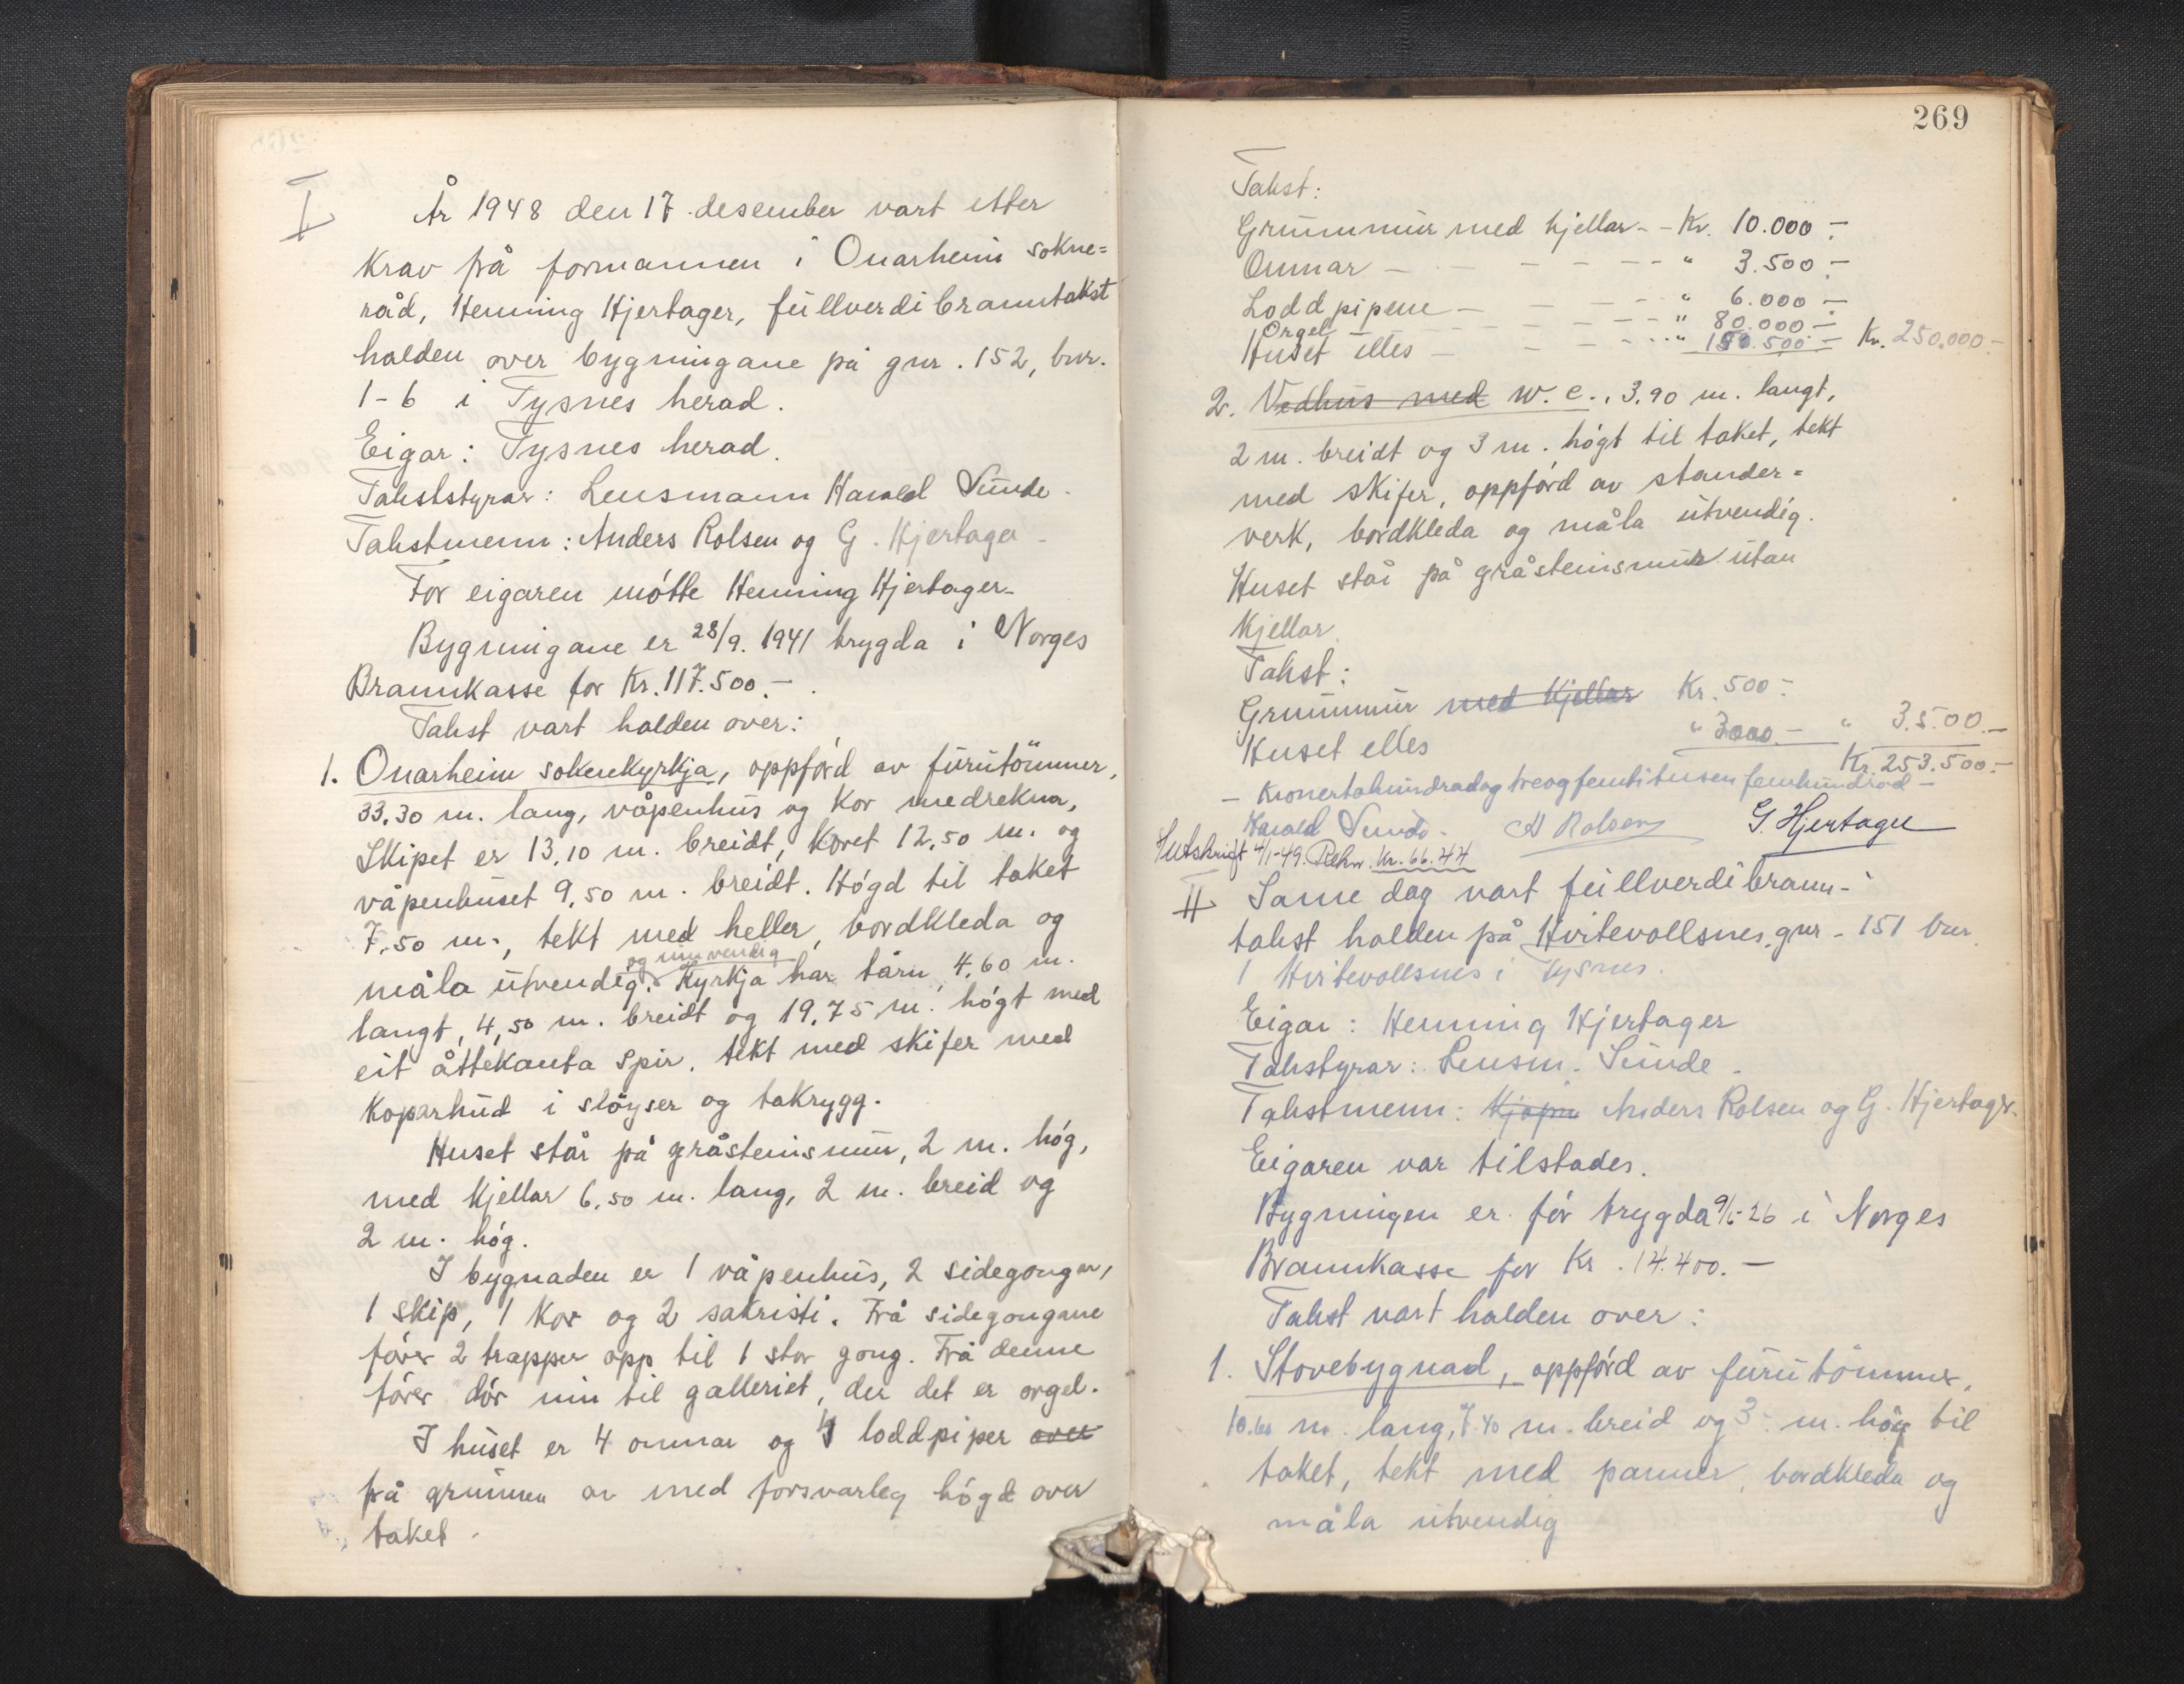 I
År 1948 den 17. desember vart etter
krav frå formannen i Onarheim sokne=
råd, Henning Hjertager, fullverdibranntakst
halden over bygningane på gnr. 152, bnr.
1-6 i Tysnes herad.
Eigar: Tysnes herad.
Takststyrar: Lensmann Harald Sunde.
Takstmenn: Anders Rolsen og G. Hjertager
For eigaren møtte Henning Hjertager.
Bygningane er 28/9. 1941 trygda i Norges
Brannkasse for Kr. 117.500.-
Takst vart halden over:
1. Onarheim soknekyrkja, oppførd av furutømmer,
33,30 m. lang, våpenhus og kor medrekna,
Skipet er 13,10 m. breidt, koret 12,50 m. og
våpenhuset 9,50 m. breidt. Høgd til taket
7,50 m., tekt med heller, bordkleda og
og innvendig
måla utvendig. Kyrkja har tårn, 4,60 m.
langt, 4,50 m. breidt og 19,75 m. høgt med
eit åttekanta spir, tekt med skifer med
koparhud i sløyser og takrygg.
Huset står på gråsteinsmur, 2 m. høg,
med kjellar 6,50 m. lang, 2 m. breid og
2 m. høg.
I bygnaden er 1 våpenhus, 2 sidegongar,
1 skip, 1 kor og 2 sakristi. Frå sidegongane
fører 2 trapper opp til 1 stor gong. Frå denne
fører dør inn til galleriet, der det er orgel.
I huset er 4 omnar og loddpiper over
frå grunnen av med forsvarleg høgd over
taket.
269
Takst:
Grunnmur med kjellar - - Kr. 10.000.-
Omnar - - - - - - " 3.500.-
Loddpipene - - - - " 6.000.-
Orgel - - - - - - " 80.000.-
Huset elles - - - - " 150.500.- Kr. 250.000.-
2. Vedhus med W.C., 3,90 m. langt,
2 m. breidt og 3 m. høgt til taket, tekt
med skifer, oppførd av stander=
verk, bordkleda og måla utvendig.
Huset står på gråsteinsmur utan
kjellar.
Takst:
Grunnmur med kjellar Kr. 500.-
Huset elles " 3000.- " 3.500.-
Kr. 253.500.-
- Kronertohundradogtreogfemtitusenfemhundrad -
Harald Sunde. A Rolsen G. Hjertager
Utskrift 4/1-49. Rekn. Kr. 66.44
II Same dag vart fullverdibrann-
takst halden på Hvitevollsnes, gnr. 151 bnr.
1 Hvitevollsnes i Tysnes.
Eigar: Henning Hjertager
Takstyrar: Lensm. Sunde.
Takstmenn: Anders Rolsen og G. Hjertager.
Eigaren var tilstades.
Bygningen er før trygda 9/5-26 i Norges
Brannkasse for Kr. 14.400.-
Takst vart halden over:
1. Stovebygnad, oppførd av furutømmer,
10.60 m. lang, 7.40 m. breid og 3- m. høg til
taket, tekt med panner, bordkleda og
måla utvendig